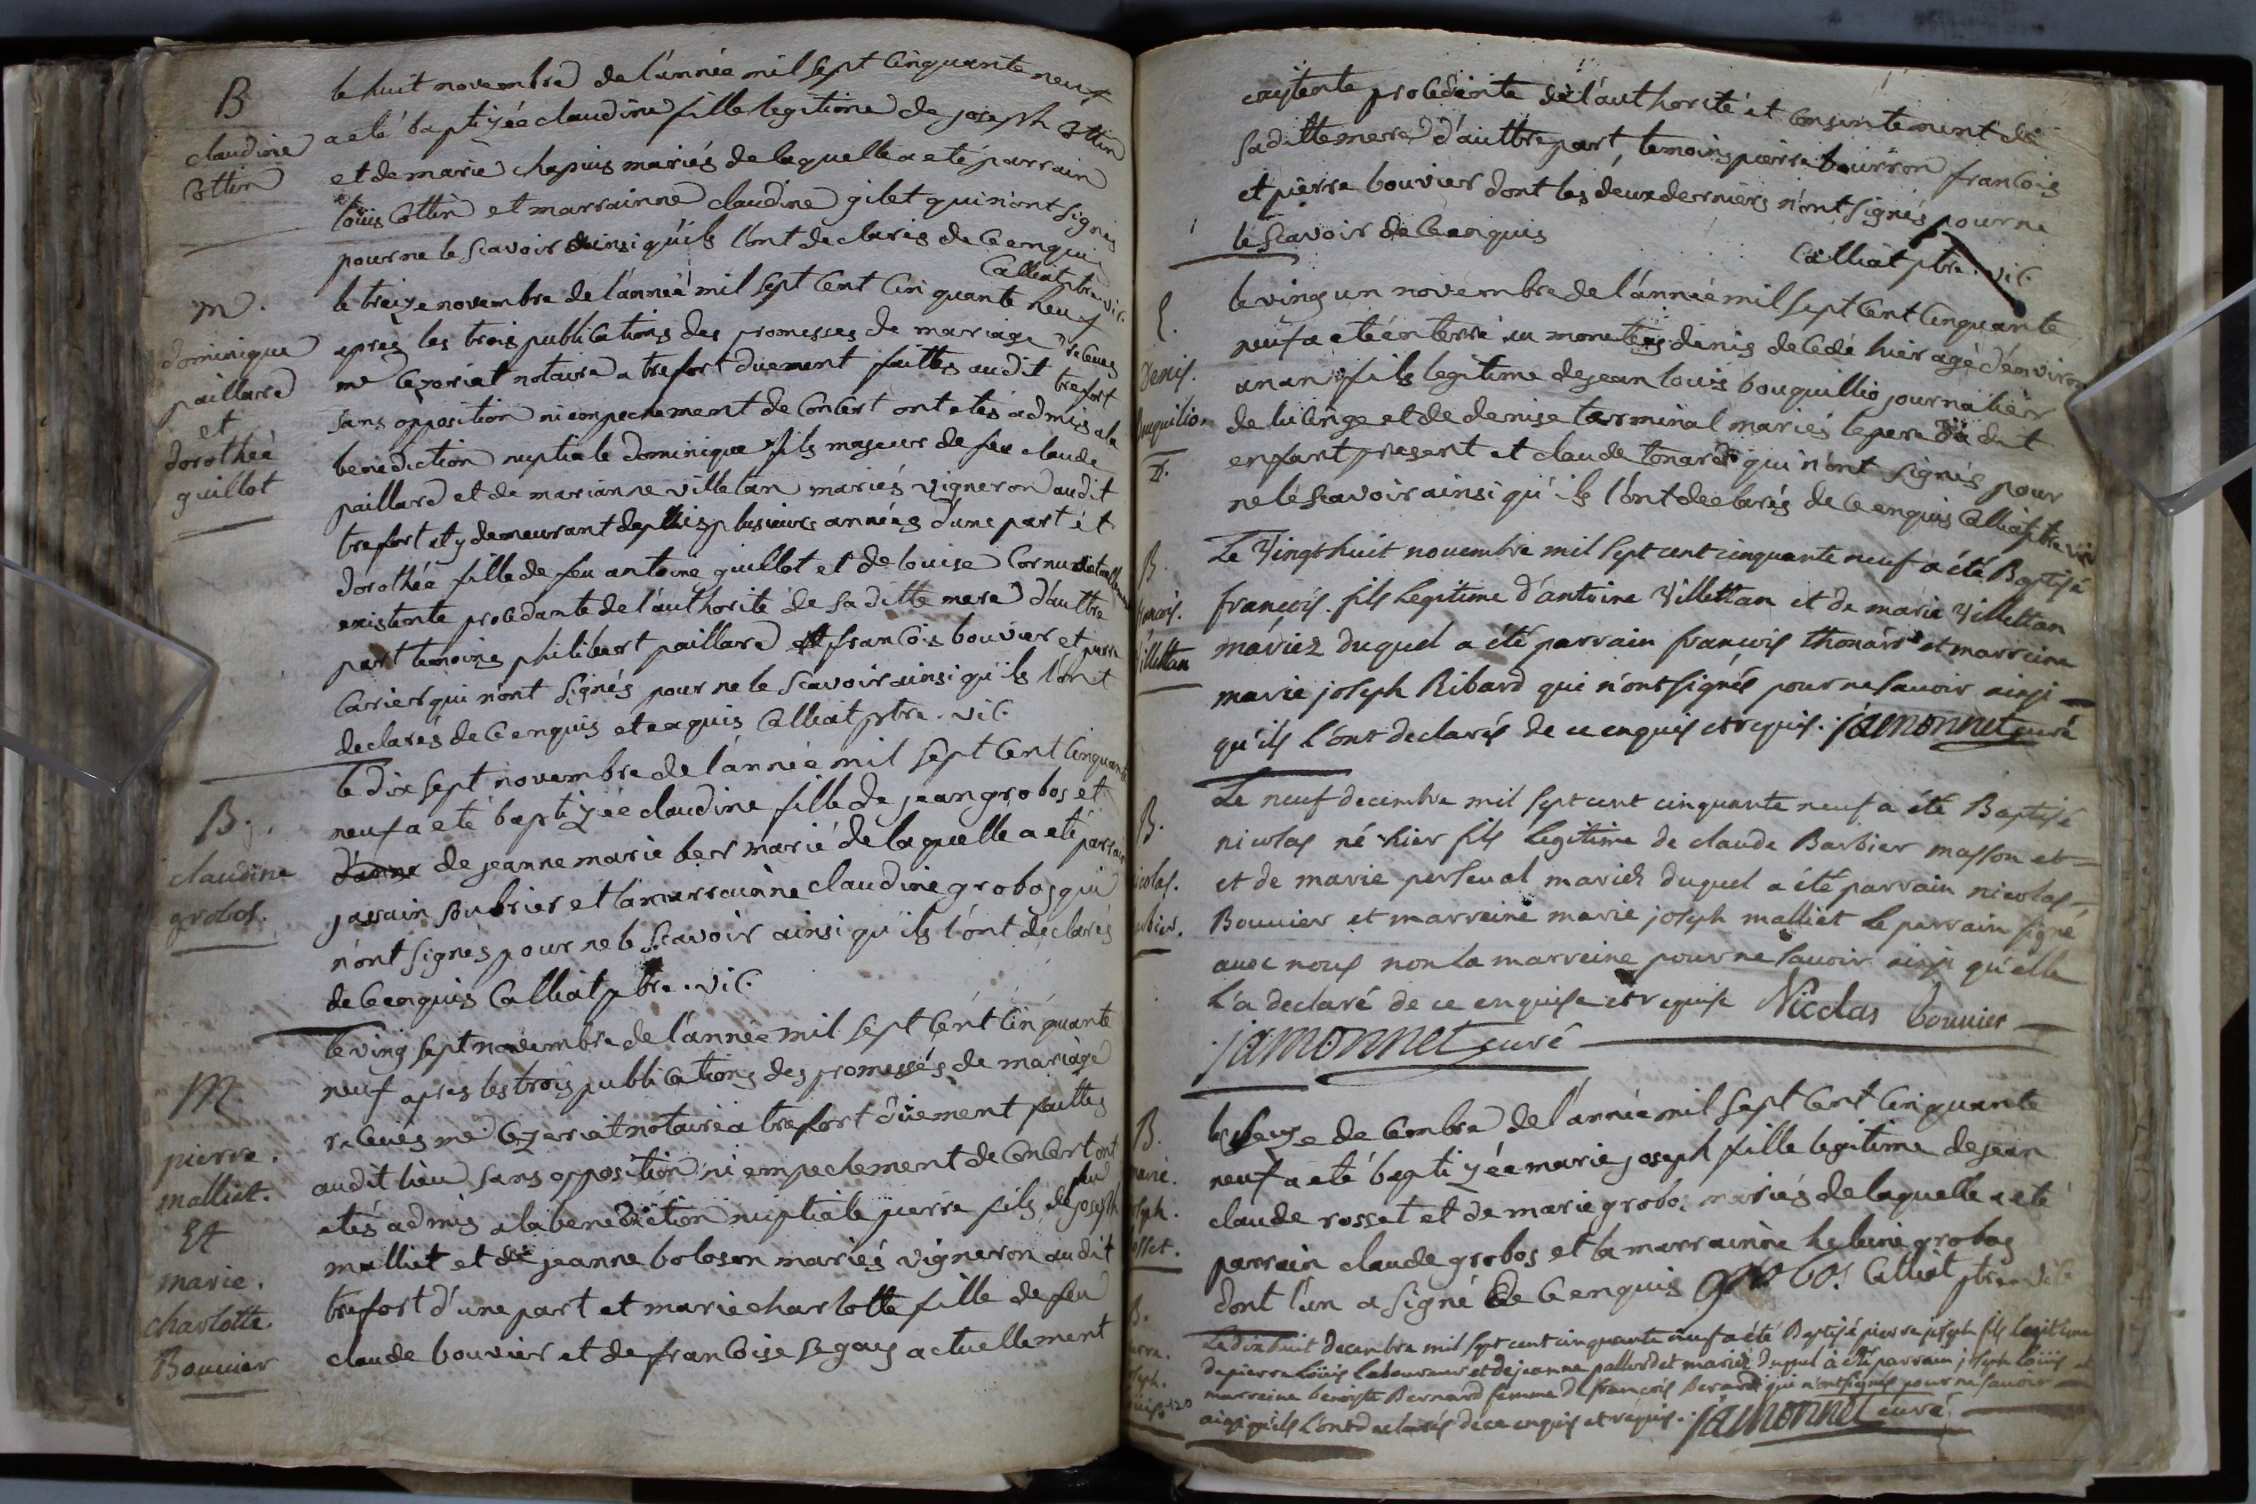 B
claudine
Cottin
le huit novembre de l'année mil sept cinquante neuf
a eté baptizée claudine fille legitime de joseph Cottin
et de marie chapuis mariés de laquelle a eté parrain
loüis Cottin et marrainne claudine gilet qui n'ont signés
pour ne le scavoir ainsi qu'ils l'ont declarés de Ce enquis
Calliat ptre. vic.
m.
dominique
paillard
et
dorothée
guillot
le treize novembre de l'année mil sept Cent Cinquante neuf
apres les trois publications des promesses de mariage receues
me Cezeriat notaire a trefort düement faittes audit trefort
sans opposition ni empechement de Concert ont etés admis a la
benediction nuptiale dominique fils majeur de feu claude
paillard et de marianne villetan mariés vigneron audit
trefort et y demeurant depuis plusieurs années d'une part et
dorothée fille de feu antoine guillot et de louise Cornu
existente procedante de l'authorité de sa ditte mere d'auttre
part temoins philibert paillard et francois bouvier et pierre
Carrier qui n'ont signés pour ne le scavoir ainsi qu'ils l'ont
declarés de Ce enquis et requis Calliat ptre. vic.
B.
claudine
grobos.
le dix sept novembre de l'année mil sept Cent Cinquante
neuf a eté baptizée claudine fille de jean grobos et
de jeanne marie ber marié de laquelle a eté parrain
soubrier et la marrainne claudine grobos qui
n'ont signés pour ne le scavoir ainsi qu'ils l'ont declarés
de Ce enquis Calliat ptre. vic.
M
pierre.
malliet.
Et
marie.
charlotte.
Bouuier
le ving sept novembre de l'année mil sept Cent Cinquante
neuf apres les trois publications des promesses de mariage
receues me Cezeriat notaire a trefort düement faittes
audit lieu sans opposition ni empechement de Concert ont
etés admis a la benediction nuptiale pierre fils de feu joseph
malliet et de jeanne boloson mariés vigneron audit
trefort d'une part et marie charlotte fille de feu
claude bouvier et de francoise segaus actuellement
existente procedente de l'authorité et Consentement de
sa ditte mere d'auttre part, temoins pierre bourron francois
et pierre bouvier dont les deux derniers n'ont signés pour ne
le scavoir de Ce enquis
Calliat ptre. vic.
E.
Denis.
bouquilion
le ving un novembre de l'année mil sept Cent Cinquante
neuf a eté enterré denis decedé hier agé d'environ
un an fils legitime de jean louis bouquillio journalier
de et de denise terminal mariés le pere du dit
enfant present et claude tonard qui n'ont signés pour
ne le scavoir ainsi qu'ils l'ont declarés de Ce enquis Calliat ptre vic
B.
francois.
Villettan
Le Vingt huit novembre mil sept cent cinquante neuf a été Baptisé
françois. fils Legitime d'antoine Villettan et de marie Villettan
mariez duquel a été parrain françois thonard et marreine
marie joseph Ribard qui n'ont signés pour ne sauoir ainsi
qu'ils l'ont declarés de ce enquis et requis. jamonnet curé
B.
nicolas.
barbier.
Le neuf decembre mil sept cent cinquante neuf a été Baptisé
nicolas né hier fils Legitime de claude Barbier masson et
et de marie perseual mariés duquel a été parrain nicolas
Bouuier et marreine marie joseph malliet Le parrain signé
auec nous non La marreine pour ne sauoir ainsi qu'elle
L'a declaré de ce enquise et requise Nicolas bouuier
jamonnet curé
B.
marie.
joseph.
rosset.
le seize de Cembre de l'année mil sept Cent Cinquante
neuf a eté baptizée marie joseph fille legitime de jean
claude rosset et de marie grobos mariés de laquelle a eté
parrain claude grobos et la marrainne heleine grobos
dont l'un a signé de Ce enquis grobos Calliat ptre vic
B.
pierre.
joseph.
Loüis 120
Le dix huit Decembre mil sept cent cinquante neuf a été Baptisé pierre joseph fils legitime
de pierre Loüis Laboureur et de jeanne mariés duquel a été parrain joseph Loüis et
marreine benoiste Bernard femme de françois Berard qui n'ont signés pour ne sauoir
ainsi qu'ils l'ont declarés de ce enquis et requis. jamonnet curé